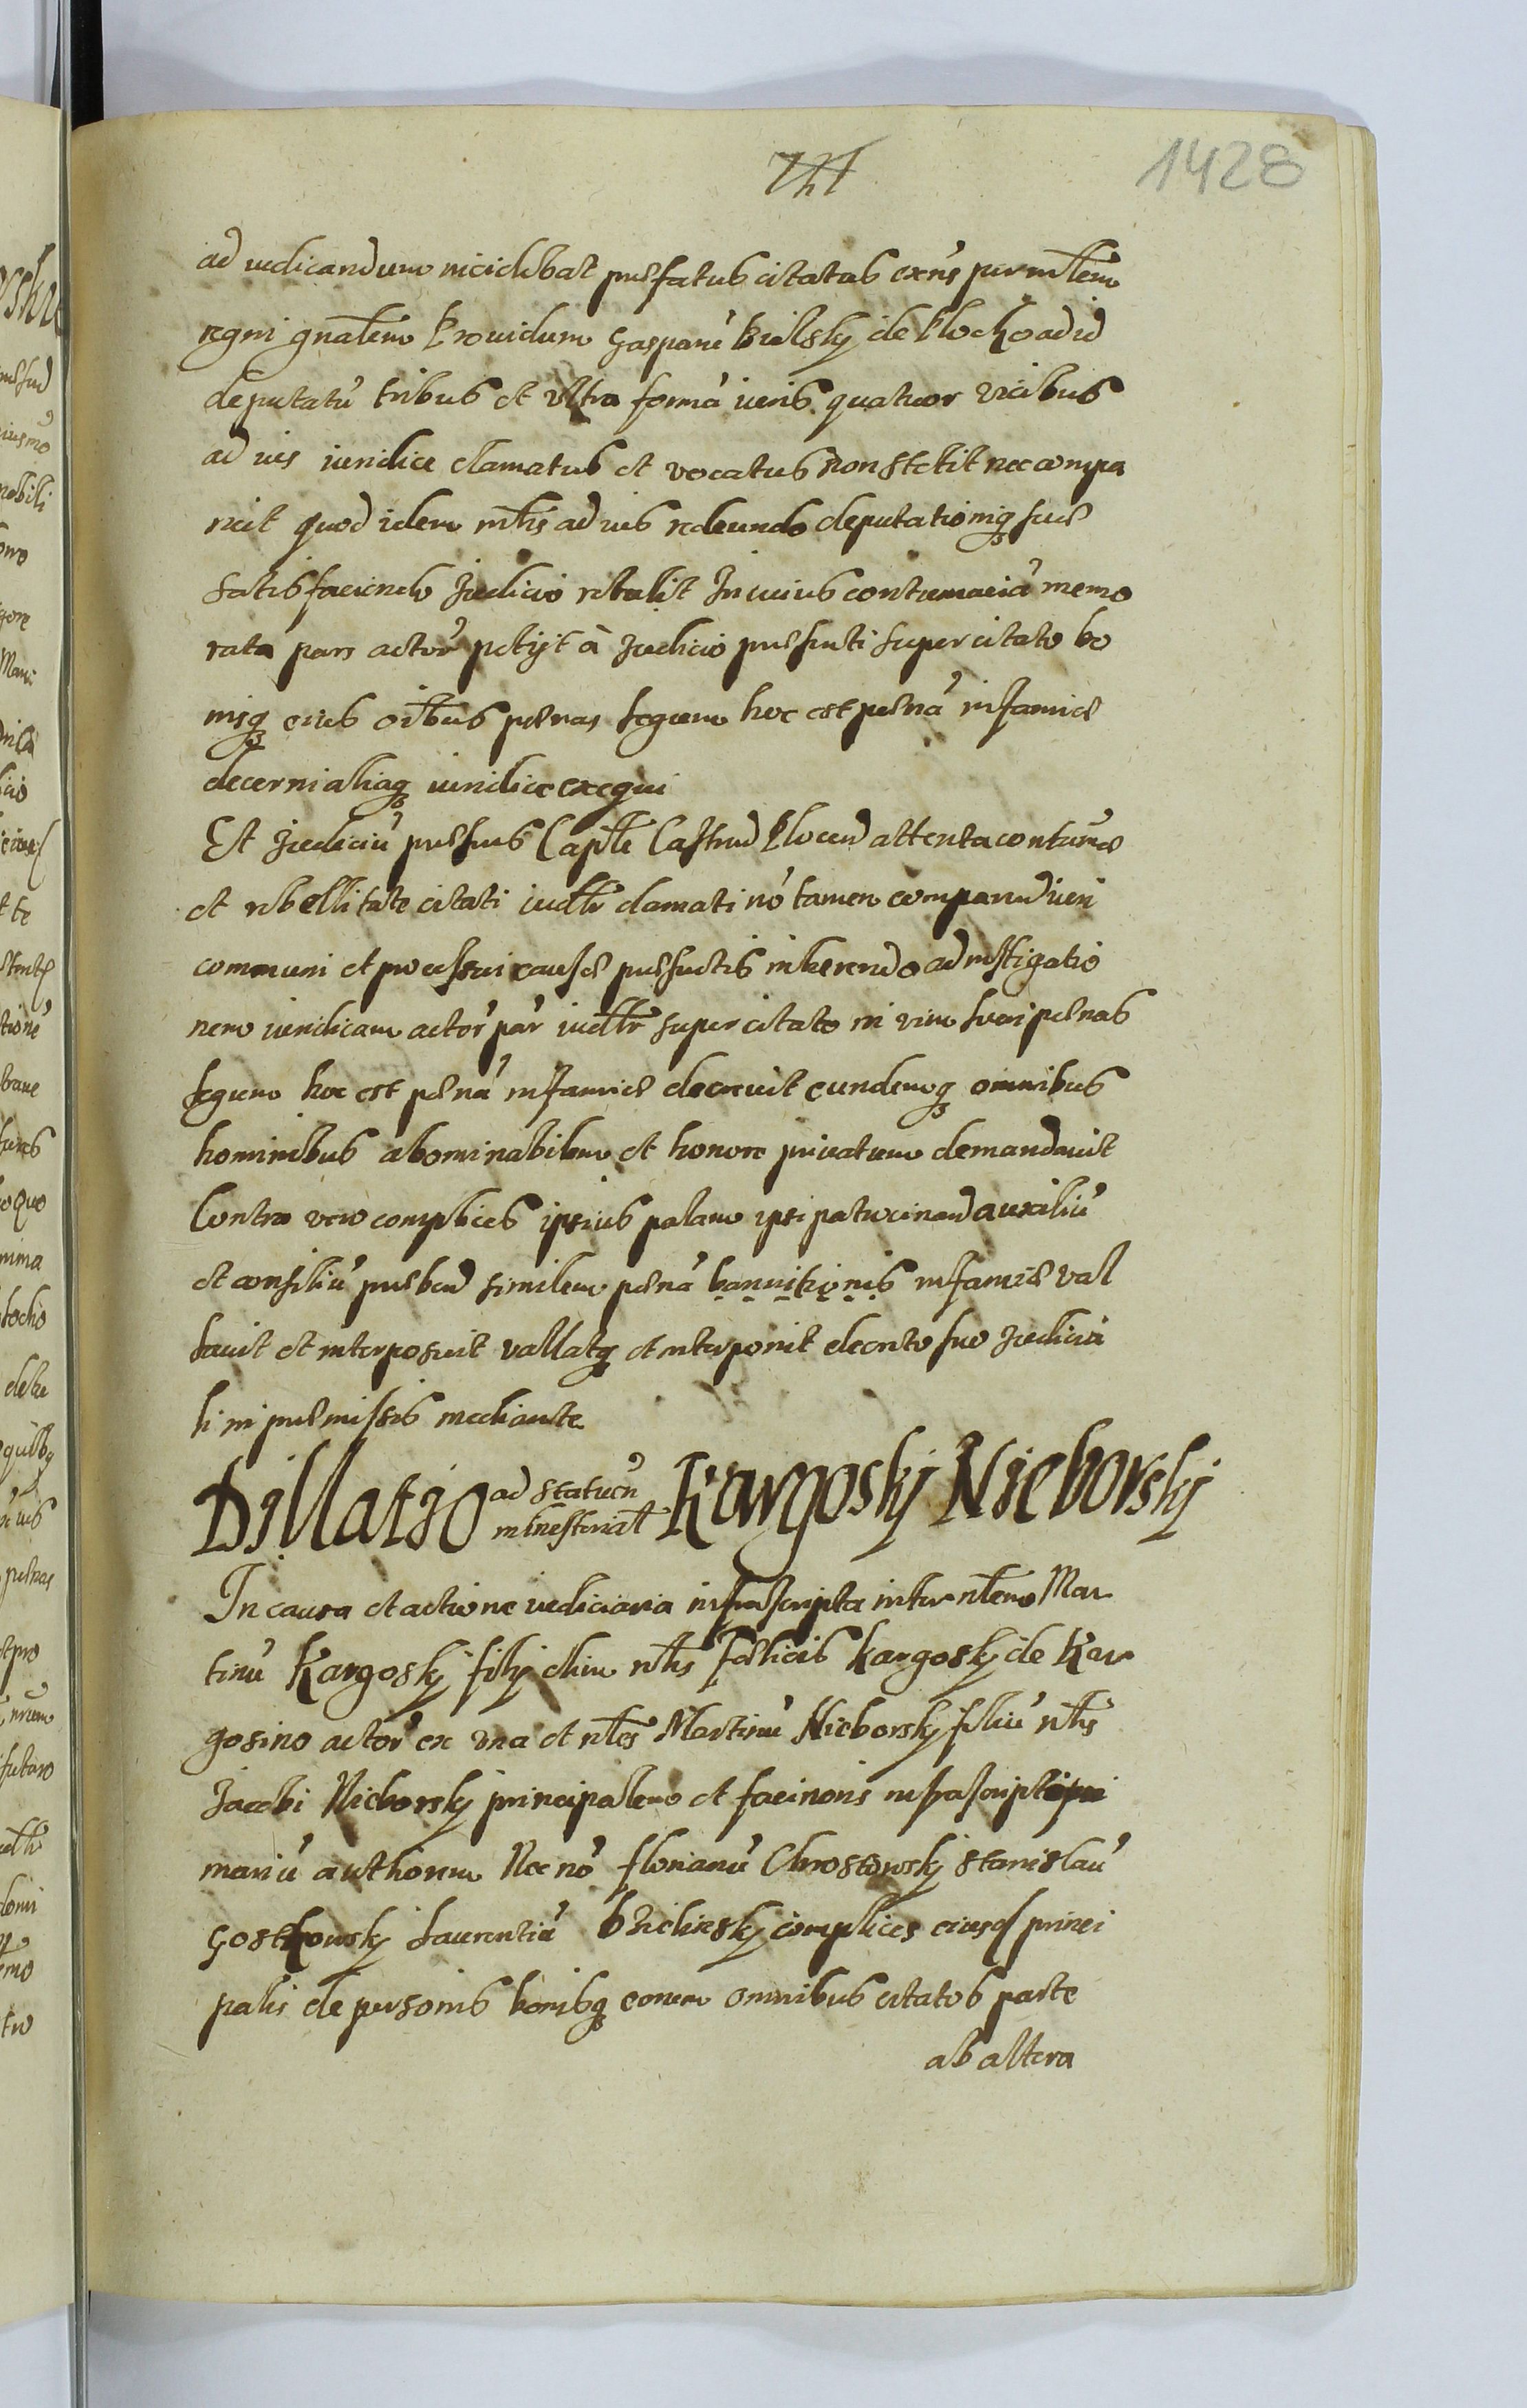 1428
ad iudicandum incidebat præfatus citatus exñs per mtlem
regni gnalem Prouidum Gasparũ Bielsky de Plocko ad id
deputatũ tribus et vltra formã iuris quatuor vicibus
ad ius iuridice clamatus et vocatus non stetit nec compa
ruit quod idem mtlis ad ius redeundo deputationiq suæ
satisfaciendo Judicio retulit In cuius contumaciã memo
rata pars actor petijt à Judicio præsenti super citato bo
nisq eius oibus pænas legum hoc est pænã infamiæ
decerni aliaq iuridice exequi
Et Judiciũ præsens Captle Castren Plocen attenta contumã
et rebellitate citati iudtr clamati nõ tamen comparen iuri
communi et processui causæ præsentis inherendo ad instigatio
nem iuridicam actor par iudtr super citato in vim lucri pænas
legum hoc est pænã infamiæ decreuit eundemq omnibus
hominibus abominabilem et honore priuatum demandauit
Contra vero complices ipsius palam ipsi patrocinan auxiliũ
et consiliũ præben similem pænã bannitionis infamiæ val
lauit et interposuit vallatq et interponit decreto suo Judicia
li in præmissis mediante
Dillatio ad statuen ministerial Kargosky Nieborsky
In causa et actione iudiciaria infrascripta inter nlem Mar
tinũ Kargosky filij olim nlis Fælicis Kargosky de Kar
gosino actor ex vna et nles Martinũ Nieborsky filiũ nlis
Jacobi Nieborsky principalem et facinoris infrascripti pri
mariũ authorem Nec nõ Florianũ Chrostowsky Stanislaũ
Gostkowsky Laurentiũ Bzielinsky complices eiusd princi
palis de personis bonisq eorum omnibus citatos parte
ab altera